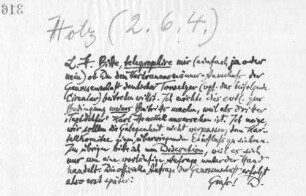 316
Holz (2.6.4.)
L. F. Bitte, telegraphire mir (einfach ja oder
nein) ob Du dem Vertrauensmänner-Ausschuß der
Genossenschaft deutscher Tonsetzer (vgl. der beifolgende
Circular) beitreten willst. Ich möchte dies evtl. zur
Bedingung meines Eintritts machen, weil als Dritter
Karl ansersehen ist. Ich neige
wir sollten die Gelegenheit nicht verpassen, dem
Einfluß zu
Im übrigen bitte ich um Discretion, weil es sich
nur um eine vorläufige Anfrage unter der Hand
handelt. Die officielle Anfrage der Genossenschaft erfolgt
also erst später. Gruß! D